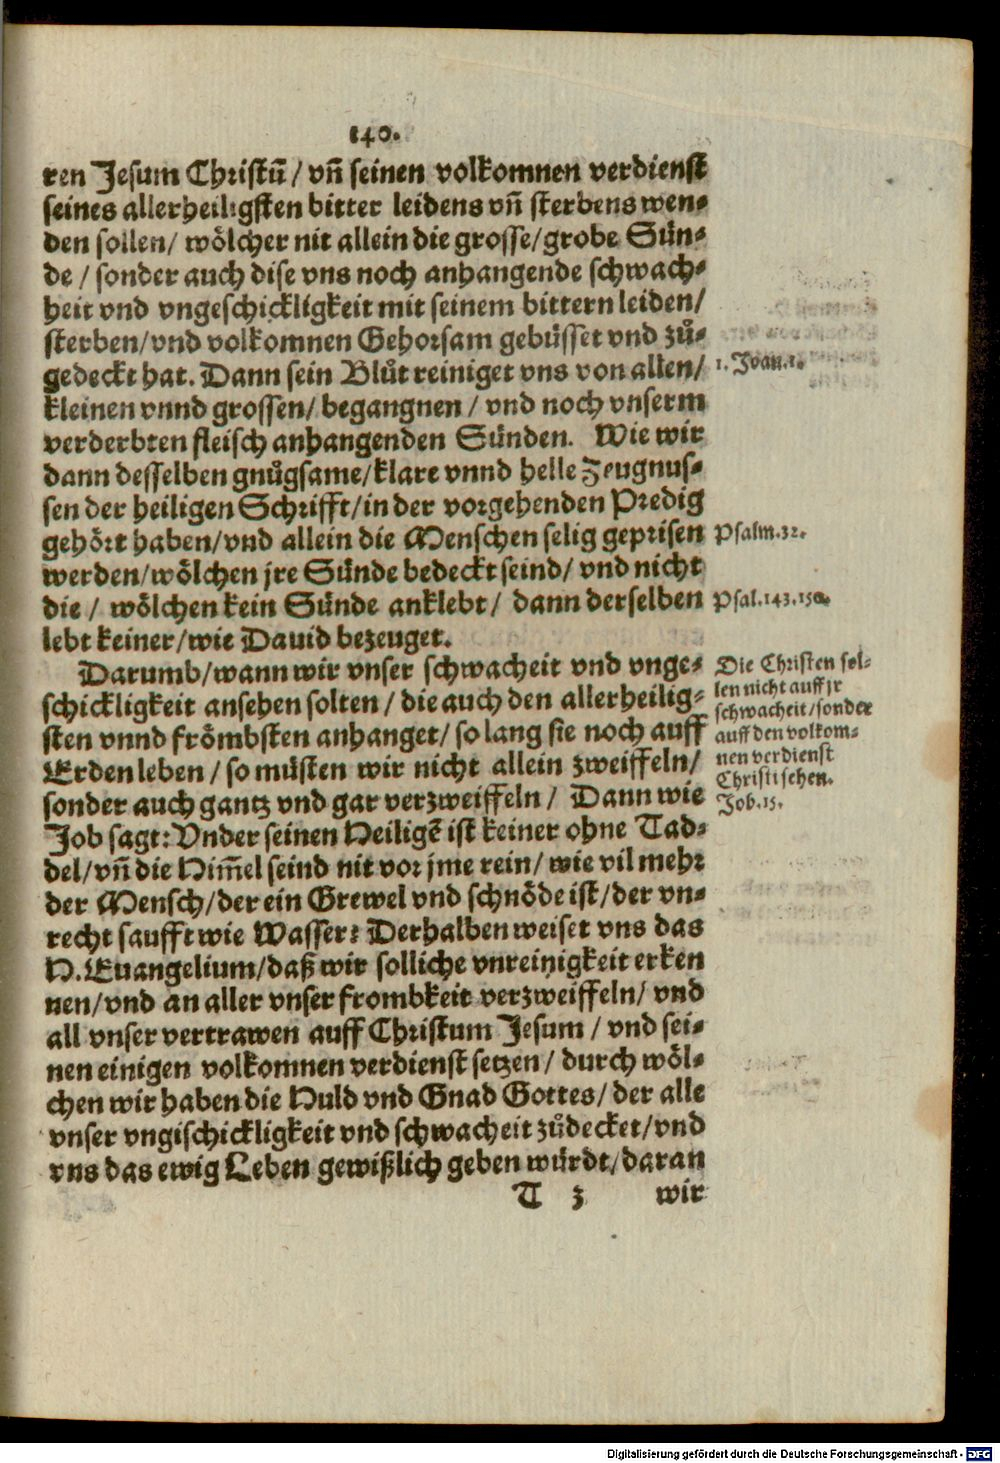 140.
ren Jesum Christū / vñ seinen volkomnen verdienst
seines allerheiligsten bitter leidens vñ sterbens wen-
den sollen / wölcher nit allein die grosse / grobe Sün-
de / sonder auch dise vns noch anhangende schwach-
heit vnd vngeschickligkeit mit seinem bittern leiden /
sterben / vnd volkomnen Gehorsam gebüsset vnd zů-
gedeckt hat. Dann sein Blůt reiniget vns von allen /
1. Joan. 1.
kleinen vnnd grossen / begangnen / vnd noch vnserm
verderbten fleisch anhangenden Sünden. Wie wir
dann desselben gnůgsame / klare vnnd helle Zeugnus-
sen der heiligen Schrifft / in der vorgehenden Predig
gehört haben / vnd allein die Menschen selig geprisen
Psalm. 32.
werden / wölchen jre Sünde bedeckt seind / vnd nicht
die / wölchen kein Sünde anklebt / dann derselben
Psal. 143. 130.
lebt keiner / wie Dauid bezeuget.
Darumb / wann wir vnser schwacheit vnd vnge-
schickligkeit ansehen solten / die auch den allerheilig-
sten vnnd frömbsten anhanget / so lang sie noch auff
Erden leben / so müsten wir nicht allein zweiffeln /
sonder auch gantz vnd gar verzweiffeln / Dann wie
Die Christen sol-
len nicht auff jr
schwacheit / sonder
auff den volkom-
nen verdienst
Christi sehen.
Job. 15.
Job sagt: Vnder seinen Heiligē ist keiner ohne Tad-
del / vñ die Him̄el seind nit vor jme rein / wie vil mehr
der Mensch / der ein Grewel vnd schnöde ist / der vn-
recht saufft wie Wasser? Derhalben weiset vns das
H. Euangelium / daß wir solliche vnreinigkeit erken
nen / vnd an aller vnser frombkeit verzweiffeln / vnd
all vnser vertrawen auff Christum Jesum / vnd sei-
nen einigen volkomnen verdienst setzen / durch wöl-
chen wir haben die Huld vnd Gnad Gottes / der alle
vnser vngischickligkeit vnd schwacheit zůdecket / vnd
vns das ewig Leben gewißlich geben würdt / daran
T 3 wir
Digitalisierung gefördert durch die Deutsche Forschungsgemeinschaft - DFG